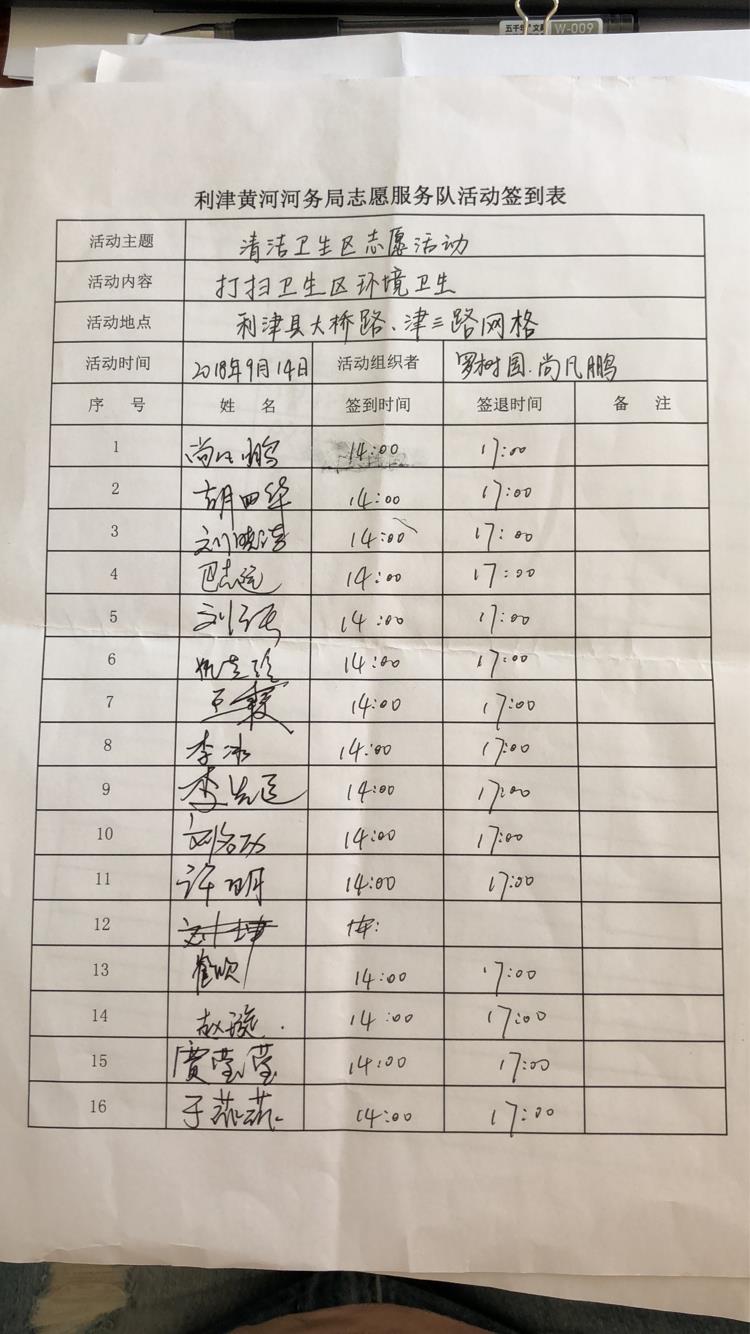 W-009
利津黄河河务局志愿服务队活动签到表
活动主题 清洁卫生区志愿活动
活动内容 打扫卫生区环境卫生
活动地点 利津县大桥路、津三路网格
活动时间 2018年9月14日 活动组织者 罗树国.尚凡鹏
序 号 姓 名 签到时间 签退时间 备 注
1 尚凡鹏 14:00 17:00
2 胡四华 14:00 17:00
3 刘晓涛 14:00 17:00
4 巴志远 14:00 17:00
5 14:00 17:00
6 14:00 17:00
7 14:00 17:00
8 李冰 14:00 17:00
9 14:00 17:00
10 14:00 17:00
11 许明 14:00 17:00
12
13 崔欣 14:00 17:00
14 赵璇. 14:00 17:00
15 贾莹莹 14:00 17:00
16 于燕燕 14:00 17:00